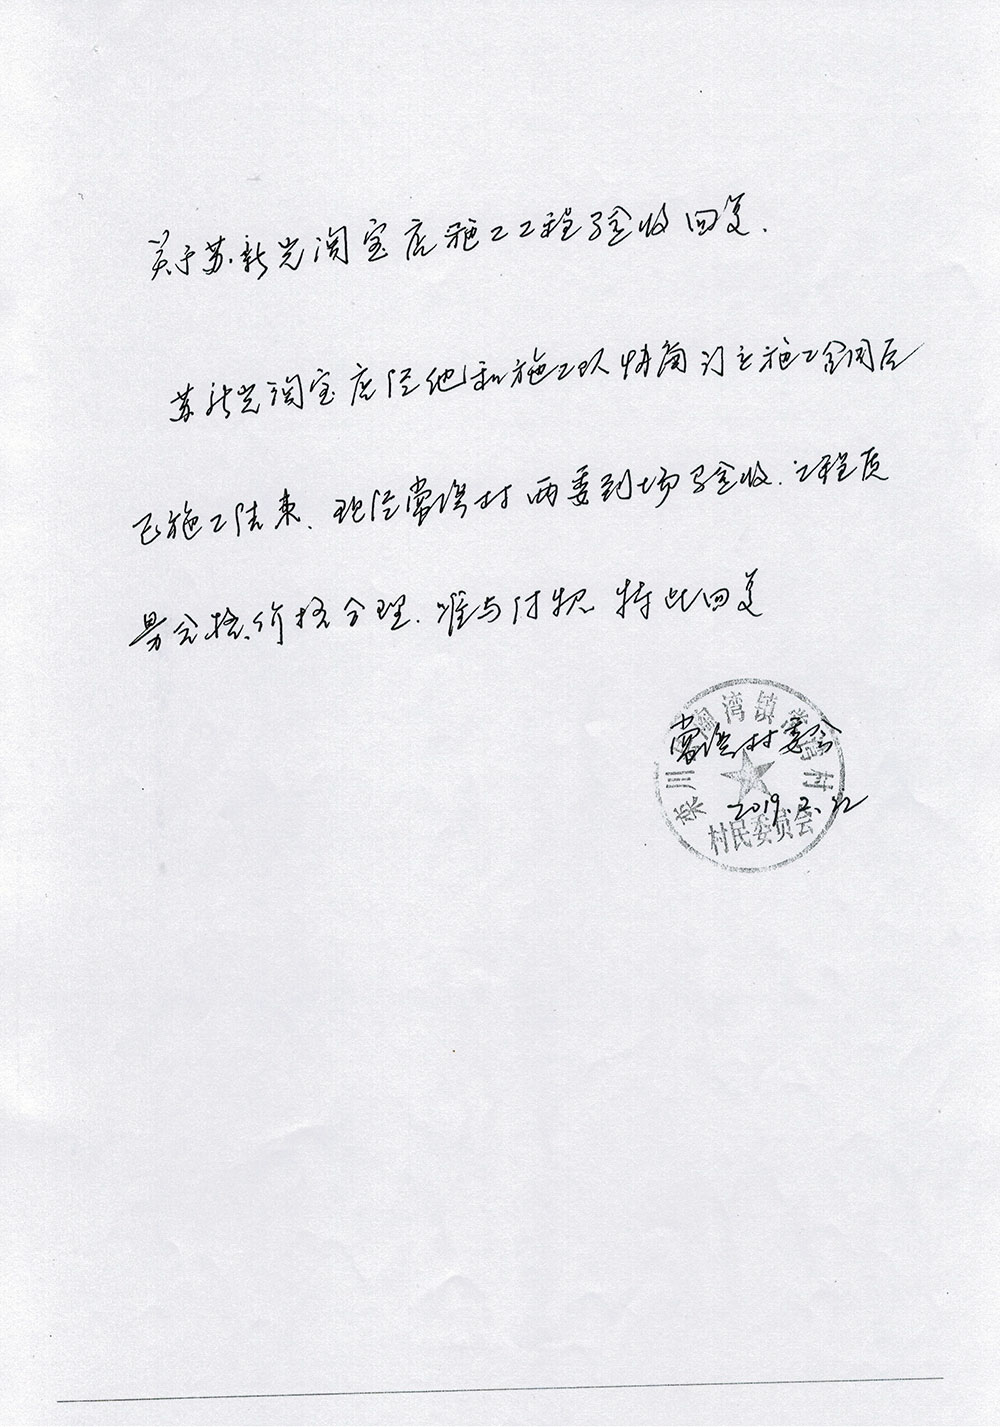 关于苏新光淘宝店施工工程验收回复.
苏新光淘宝店经他和施工队协商订立施工合同后
已施工结束、现经常湾村两委到场验收.工程质
量合格、价格合理.准与付款 特此回复
常湾村委会
2019.2.22
湾镇常湾村
村民委员会